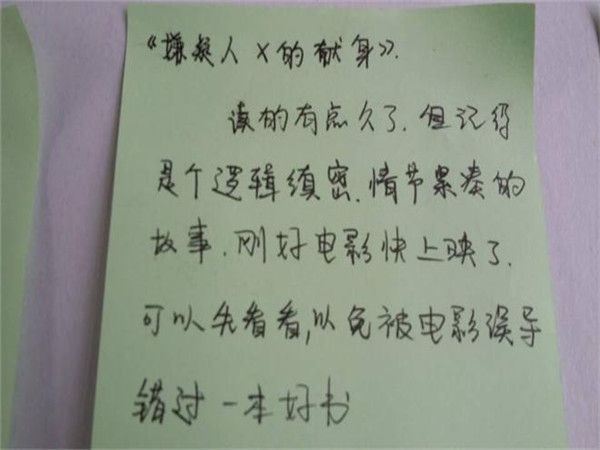 《嫌疑人X的献身》.
读的有点久了.但记得
是个逻辑缜密.情节紧凑的
故事.刚好电影快上映了.
可以先看看,以免被电影误导
错过一本好书